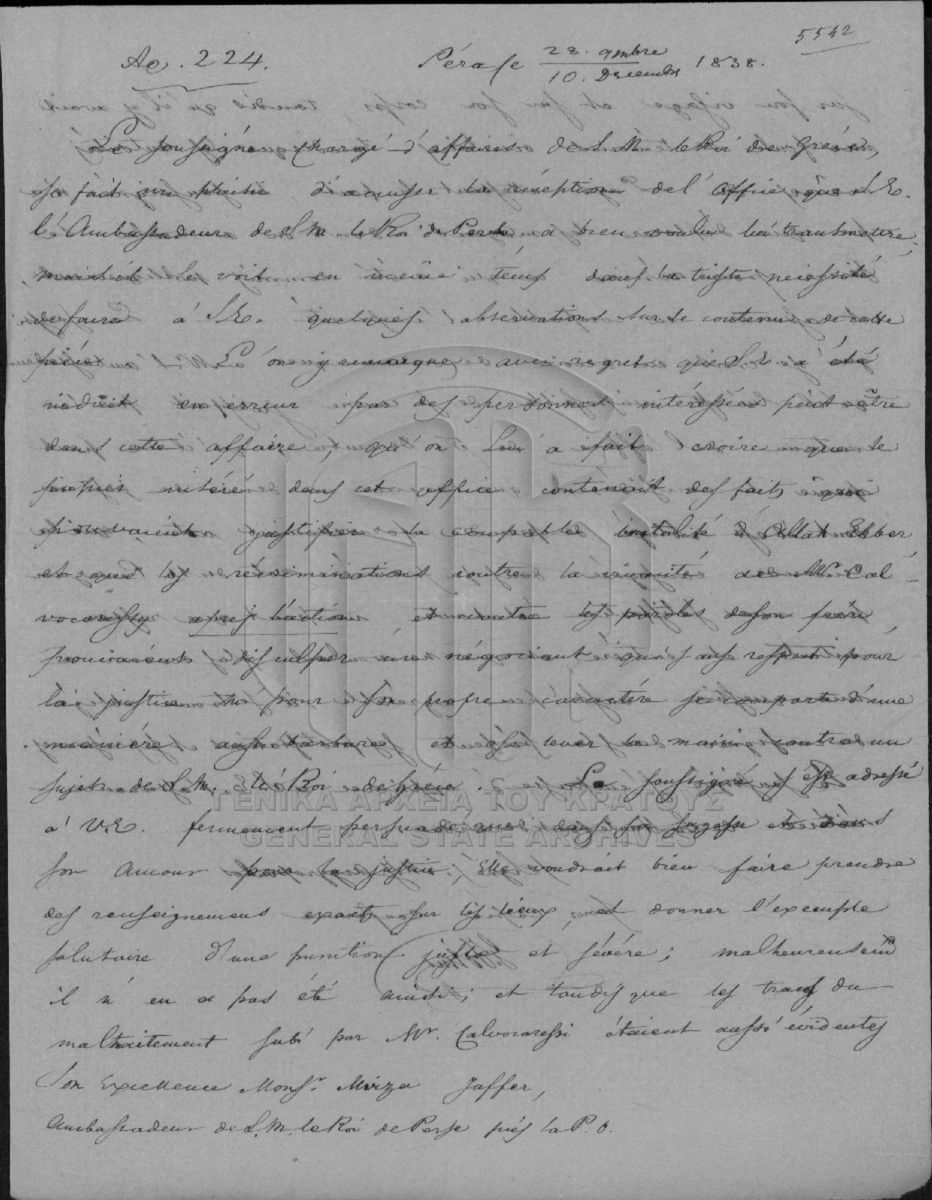 5542
No. 224.
Péra le 28. 9mbre / 10. Decembre 1838.
Le soussigné Chargé d'affaires de S. M. le Roi de Grèce,
se fait un plaisir d'accuser la réception de l'office que S. E.
l'Ambassadeur de S. M. le Roi de Perse a bien voulu lui transmettre,
mais il se voit en même tems dans la triste nécessité
de faire à S. E. quelques observations sur le contenu de cette
pièce. L'on y remarque avec regret que S. E. a été
induit en erreur par des personnes intéressées peut être
dans cette affaire, qu'on Lui a fait croire que le
inséré dans cet office contenait des faits qui
pouvaient justifier la coupable brutalité d'Allah Ekber
et que les récriminations contre la de Mr. Cal-
vocoressy après l'action, et contre les paroles de son frère
pouvaient disculper un négociant qui sans respect pour
la justice ni pour son propre caractère se comporte d'une
manière aussi barbare et ose lever la main contre un
sujet de S. M. le Roi de Grèce. Le soussigné s'est adressé
à V. E. fermement persuadé que dans sa sagesse et dans
son amour pour la justice, Elle voudrait bien faire prendre
des renseignemens exacts sur les lieux, et donner l'exemple
salutaire d'une punition juste et sévère; malheureusem͞t
il n'en a pas été ainsi; et tandis que les traces du
maltraitement subi par Mr. Calvocoressi étaient aussi évidentes
Son Excellence Monsr. Mirza Jaffer,
Ambassadeur de S. M. le Roi de Perse près la P. O.
ΓΕΝΙΚΑ ΑΡΧΕΙΑ ΤΟΥ ΚΡΑΤΟΥΣ
GENERAL STATE ARCHIVES